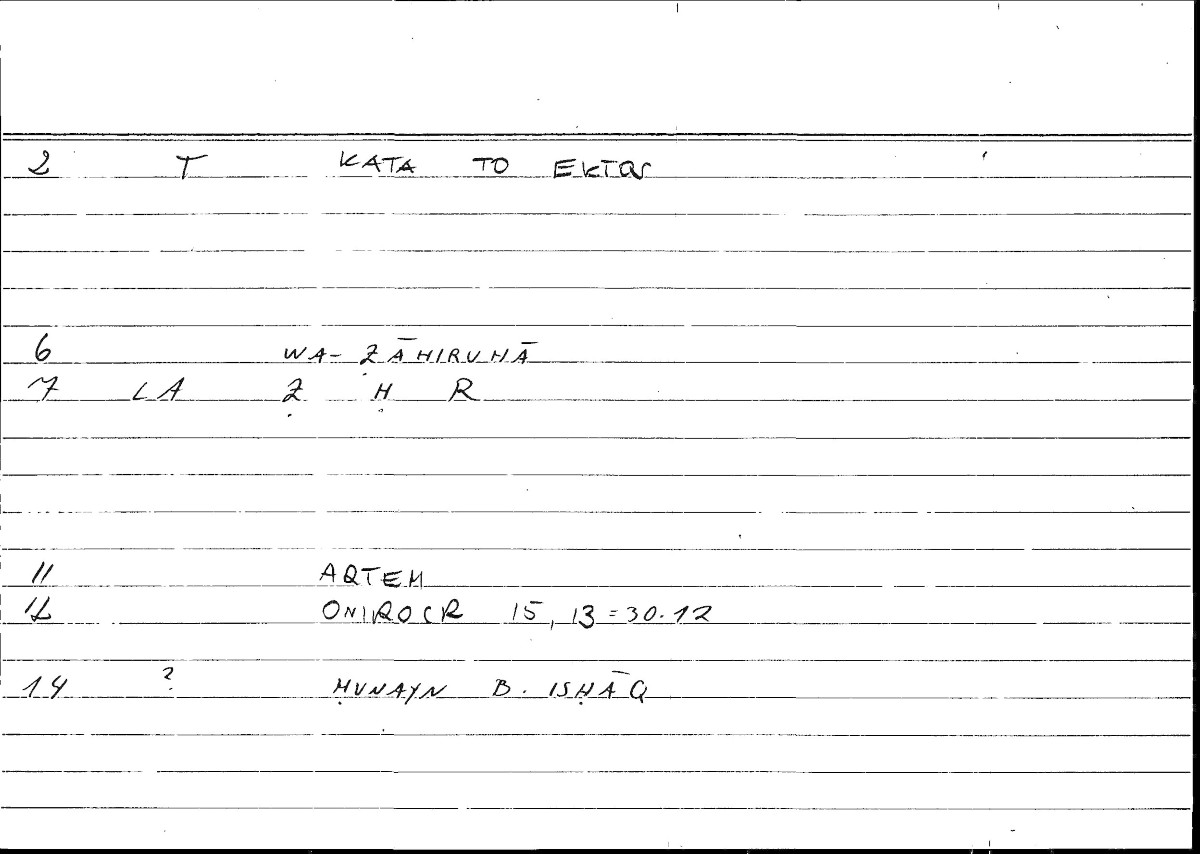 2 T KATA TO EKTOS
6 WA- ẒĀHIRUHĀ
7 LA Ẓ Ḥ R
11 ARTEM
12 ONIROCR 15,13=30.12
14 ? ḤUNAYN B. ISḤĀQ